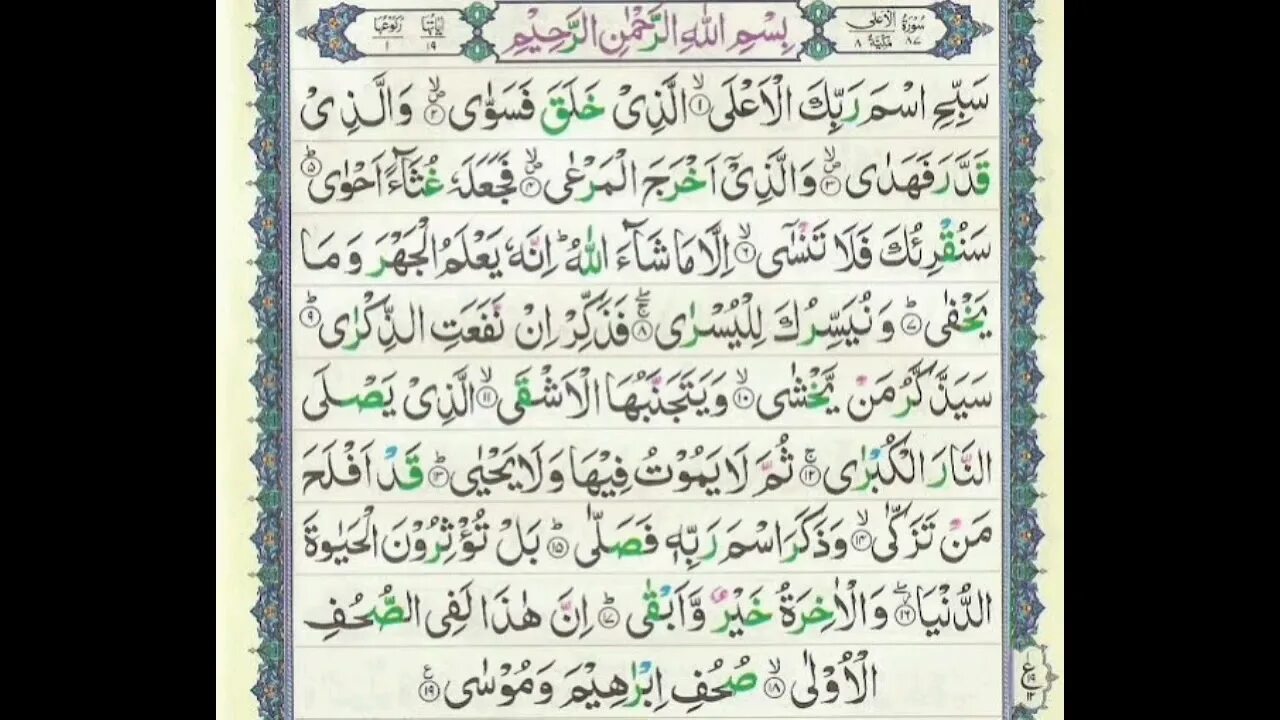 سُوْرَةُ الْاَعْلٰى مَكِّيَّةٌ ٨٧ ٨ بِسْمِ اللّٰهِ الرَّحْمٰنِ الرَّحِيْمِ اٰيَاتُهَا ١٩ رُكُوْعُهَا ١
سَبِّحِ اسْمَ رَبِّكَ الْاَعْلَى ۙ۝١ الَّذِىْ خَلَقَ فَسَوّٰى ۪ۙ۝٢ وَالَّذِىْ
قَدَّرَ فَهَدٰى ۪ۙ۝٣ وَالَّذِىْٓ اَخْرَجَ الْمَرْعٰى ۪ۙ۝٤ فَجَعَلَهٗ غُثَآءً اَحْوٰى ؕ۝٥
سَنُقْرِئُكَ فَلَا تَنْسٰٓى ۙ۝٦ اِلَّا مَا شَآءَ اللّٰهُ ؕ اِنَّهٗ يَعْلَمُ الْجَهْرَ وَمَا
يَخْفٰى ؕ۝٧ وَنُيَسِّرُكَ لِلْيُسْرٰى ۚۖ۝٨ فَذَكِّرْ اِنْ نَّفَعَتِ الذِّكْرٰى ؕ۝٩
سَيَذَّكَّرُ مَنْ يَّخْشٰى ۙ۝١٠ وَيَتَجَنَّبُهَا الْاَشْقَى ۙ۝١١ الَّذِىْ يَصْلَى
النَّارَ الْكُبْرٰى ۚ۝١٢ ثُمَّ لَا يَمُوْتُ فِيْهَا وَلَا يَحْيٰى ؕ۝١٣ قَدْ اَفْلَحَ
مَنْ تَزَكّٰى ۙ۝١٤ وَذَكَرَ اسْمَ رَبِّهٖ فَصَلّٰى ؕ۝١٥ بَلْ تُؤْثِرُوْنَ الْحَيٰوةَ
الدُّنْيَا ۖ۝١٦ وَالْاٰخِرَةُ خَيْرٌ وَّاَبْقٰى ؕ۝١٧ اِنَّ هٰذَا لَفِى الصُّحُفِ
الْاُوْلٰى ۙ۝١٨ صُحُفِ اِبْرٰهِيْمَ وَمُوْسٰى ۝١٩ ع
ع ١٩ ١٢